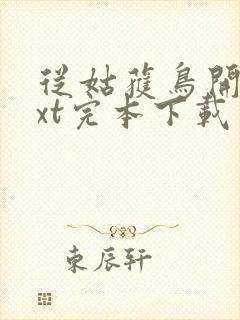 從姑獲鳥開
xt完本下載
東辰軒